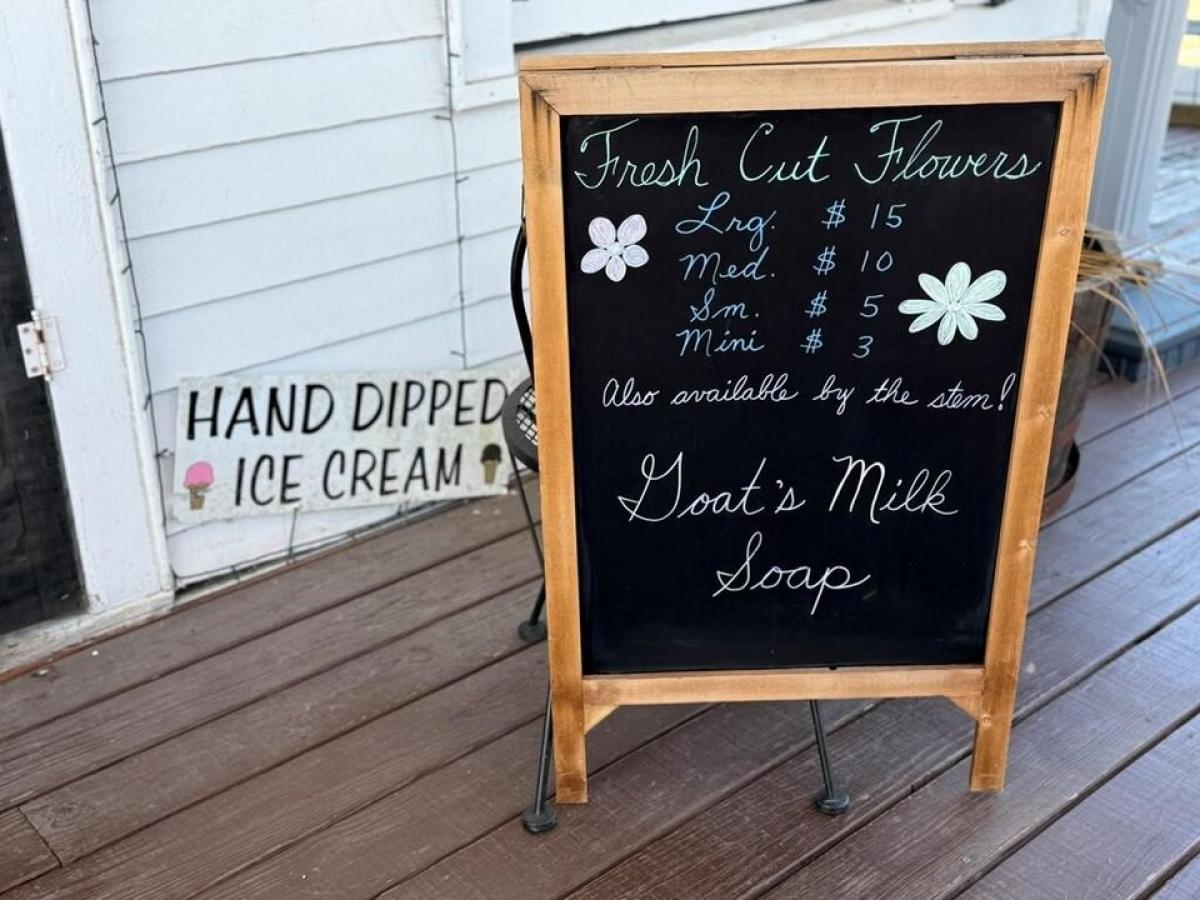 Fresh Cut Flowers
Lrg. $ 15
Med. $ 10
Sm. $ 5
Mini $ 3
Also available by the stem!
Goat's Milk
Soap
HAND DIPPED
ICE CREAM